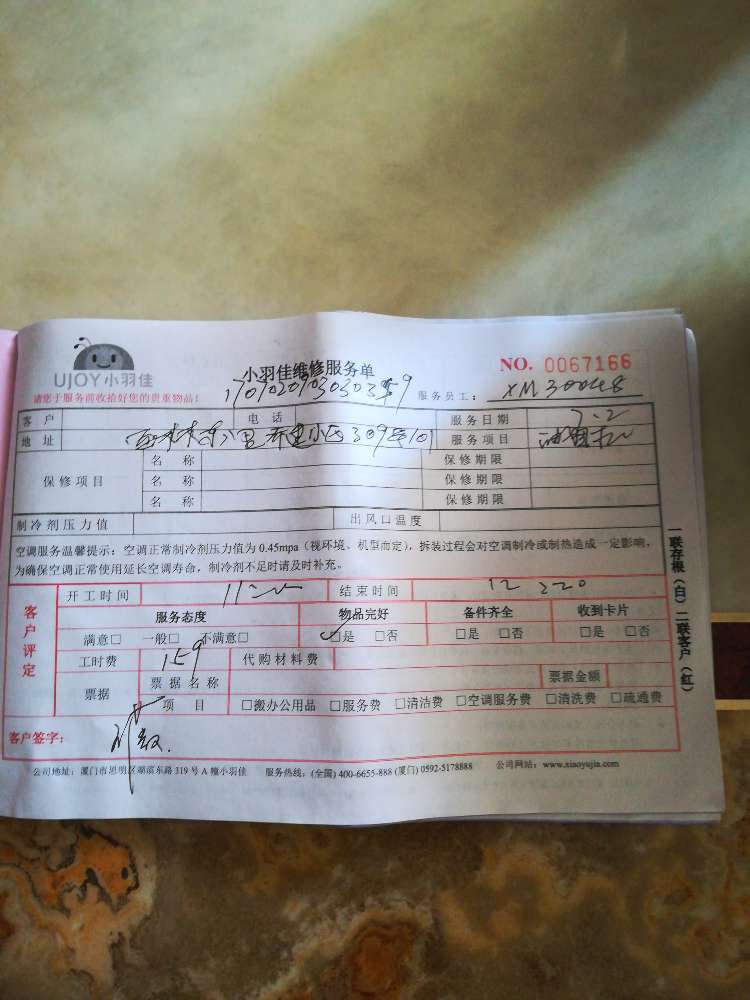 UJOY小羽佳
请您于服务前收拾好您的贵重物品！
小羽佳维修服务单
NO. 0067166
服务员工： XM30048
客户 电话 服务日期 7.2
地址 309号101 服务项目
保修项目 名称 保修期限
名称 保修期限
名称 保修期限
制冷剂压力值 出风口温度
空调服务温馨提示：空调正常制冷剂压力值为 0.45mpa（视环境、机型而定），拆装过程会对空调制冷或制热造成一定影响，
为确保空调正常使用延长空调寿命，制冷剂不足时请及时补充。
客户评定
开工时间 结束时间
服务态度 物品完好 备件齐全 收到卡片
满意□ 一般□ 不满意□ □是 □否 □是 □否 □是 □否
工时费 159 代购材料费
票据 票据名称 票据金额
项目 □搬办公用品 □服务费 □清洁费 □空调服务费 □清洗费 □疏通费
客户签字：
公司地址：厦门市思明区湖滨东路 319 号 A 幢小羽佳 服务热线：(全国) 400-6655-888 (厦门) 0592-5178888 公司网站：www.xiaoyujia.com
一联存根（白）二联客户（红）